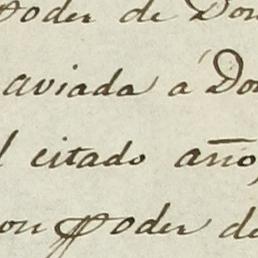 poder de Don
aviada á Don
l citado año,
on poder de